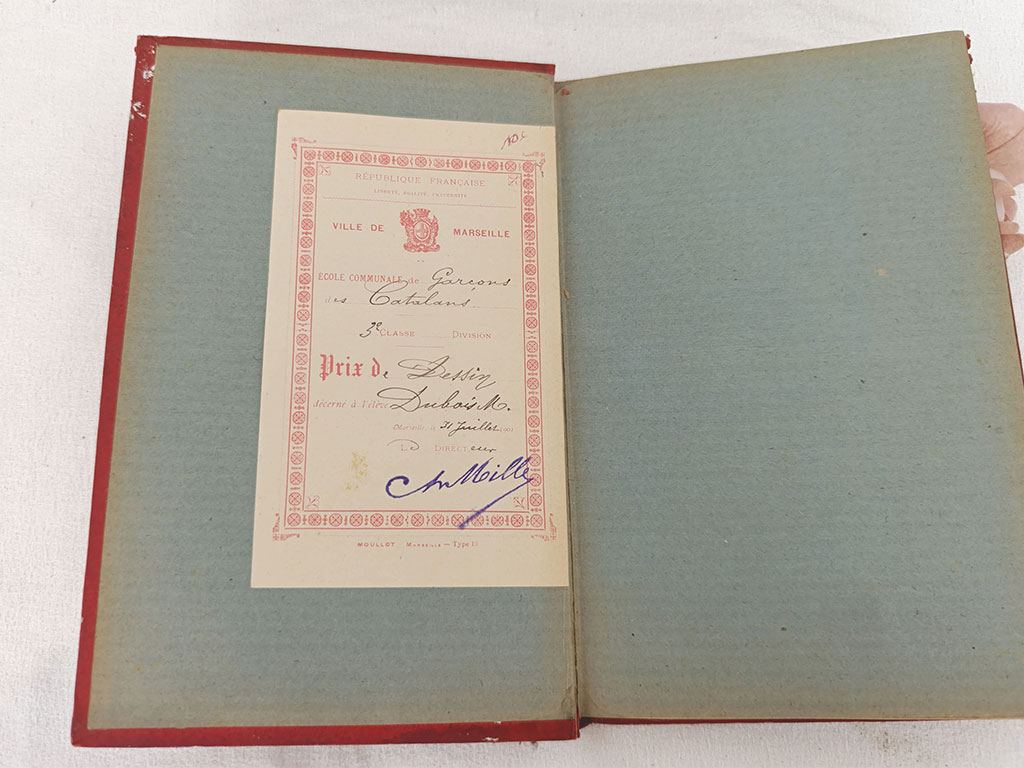 RÉPUBLIQUE FRANÇAISE
LIBERTÉ, ÉGALITÉ, FRATERNITÉ
VILLE DE MARSEILLE
ECOLE COMMUNALE de Garçons
des Catalans
3e CLASSE DIVISION
Prix de Dessin
décerné à l'élève Dubois M.
Marseille, le 31 Juillet 1901
LE DIRECTeur
Mille
MOULLOT MARSEILLE — Type 13